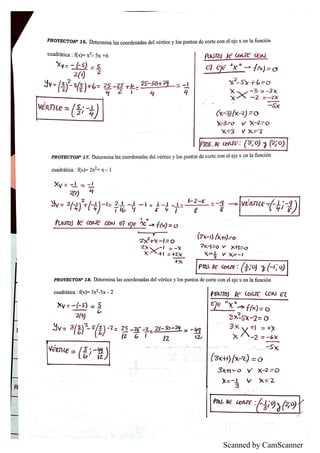 PROYECTO Nº 16. Determina las coordenadas del vértice y los puntos de corte con el eje x en la función
cuadrática : f(x)= x²- 5x +6
xv = -(-5)/2(1) = 5/2
yv = (5/2)² - 5(5/2) + 6 = 25/4 - 25/2 + 6/1 = 25-50+24/4 = -1/4
VÉRTICE = (5/2 ; -1/4)
PUNTOS DE CORTE CON
el eje "x" → f(x) = 0
x² - 5x + 6 = 0
x -3 = -3x
x -2 = -2x
-5x
(x-3)(x-2) = 0
x-3=0 v x-2=0
x=3 v x=2
PTOS. DE CORTE : (3;0) y (2;0)
PROYECTO Nº 17. Determina las coordenadas del vértice y los puntos de corte con el eje x en la función
cuadrática: f(x)= 2x²+ x - 1
xv = -1/2(2) = -1/4
yv = 2(-1/4)² + (-1/4) - 1 = 2·1/16 - 1/4 - 1 = 1/8 - 1/4 - 1/1 = 1-2-8/8 = -9/8 → VÉRTICE = (-1/4 ; -9/8)
PUNTOS DE CORTE CON el eje "x" → f(x) = 0
2x² + x - 1 = 0
2x -1 = -x
x +1 = +2x
+x
(2x-1)(x+1) = 0
2x-1=0 v x+1=0
x = 1/2 v x = -1
PTOS. DE CORTE : (1/2;0) y (-1;0)
PROYECTO Nº 18. Determina las coordenadas del vértice y los puntos de corte con el eje x en la función
cuadrática : f(x)= 3x²-5x - 2
xv = -(-5)/2(3) = 5/6
yv = 3(5/6)² - 5(5/6) - 2 = 25/12 - 25/6 - 2/1 = 25-50-24/12 = -49/12
VÉRTICE = (5/6 ; -49/12)
PUNTOS DE CORTE CON EL
EJE "x" → f(x) = 0
3x² - 5x - 2 = 0
3x +1 = +x
x -2 = -6x
-5x
(3x+1)(x-2) = 0
3x+1=0 v x-2=0
x = -1/3 v x = 2
PTOS. DE CORTE : (-1/3;0) y (2;0)
Scanned by CamScanner